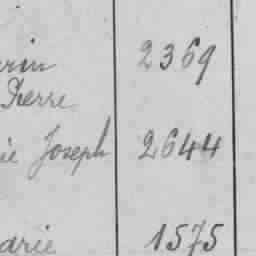 2369
Pierre
ie Joseph 2644
arie 1575